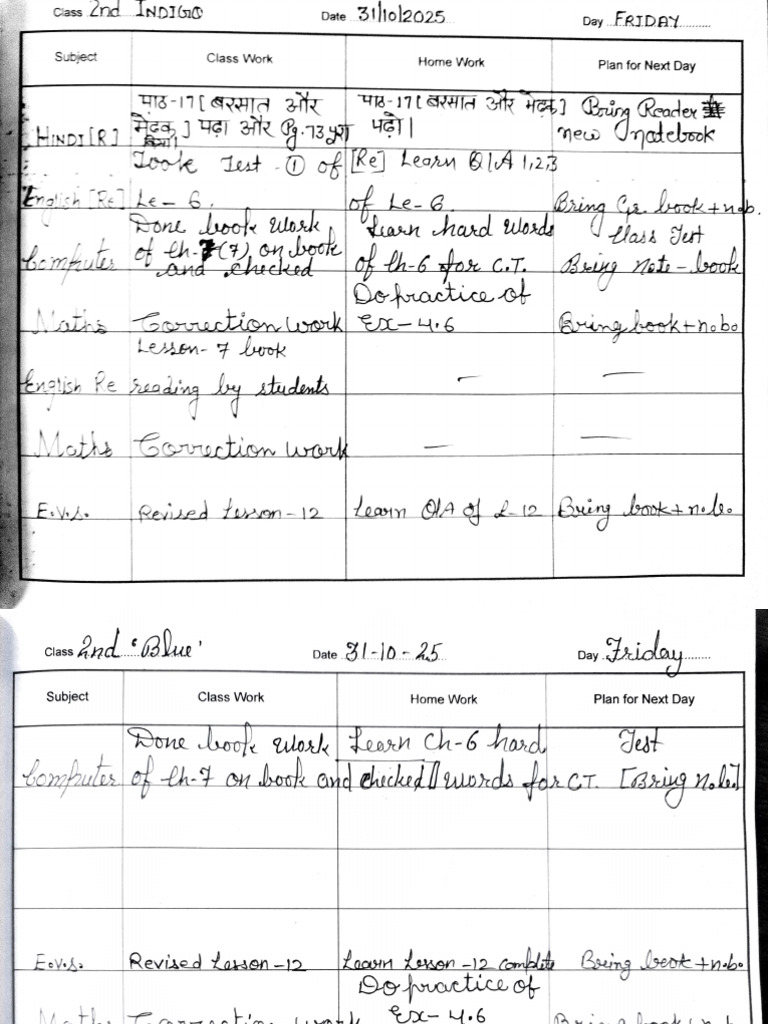 Class 2nd INDIGO Date 31/10/2025 Day FRIDAY
Subject Class Work Home Work Plan for Next Day
HINDI [R] पाठ-17 [ बरसात और पाठ-17 [ बरसात और मेंढ़क ] Bring Reader
मेंढ़क ] पढ़ा और Pg. 73 पूरा पढ़ो। new notebook
किया।
Took Test ① of [Re] Learn Q/A 1,2,3
English [Re] Le-6. of Le-6. Bring Gr. book + n.b.
Done book work Learn hard words Class Test
Computer of Ch-7 (7) on book of Ch-6 for C.T. Bring Note-book
and checked
Do practice of
Maths Correction work Ex-4.6 Bring book + n.b.
Lesson-7 book
English Re reading by students — —
Maths Correction work — —
E.V.S. Revised Lesson-12 Learn Q/A of L-12 Bring book + n.b.
Class 2nd 'Blue' Date 31-10-25 Day Friday
Subject Class Work Home Work Plan for Next Day
Done book work Learn Ch-6 hard Test
Computer of Ch-7 on book and checked words for C.T. [Bring N.b.]
E.V.S. Revised Lesson-12 Learn Lesson-12 complete Bring book + n.b.
Do practice of
Maths Correction work Ex-4.6 Bring book + n.b.